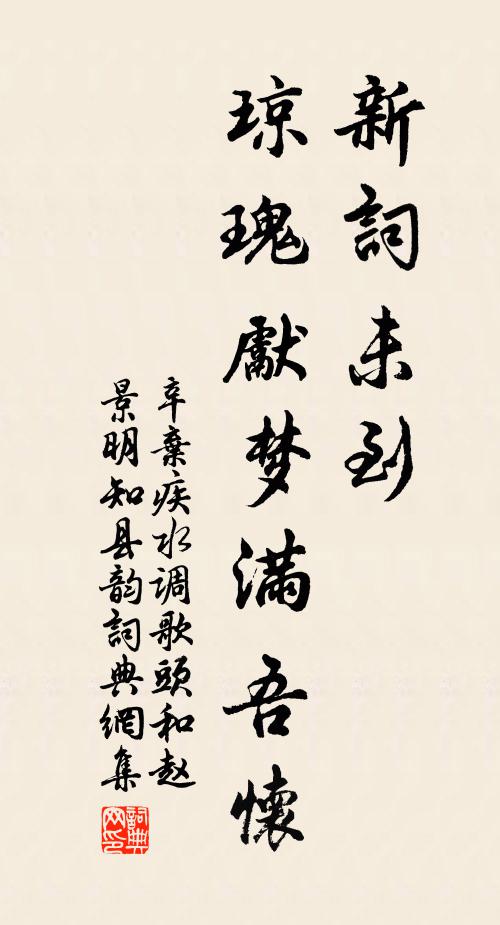 新詞未到
琼瑰獻梦满吾懷
辛棄疾水调歌頭和赵
景明知县韵詞典網集
詞典網印